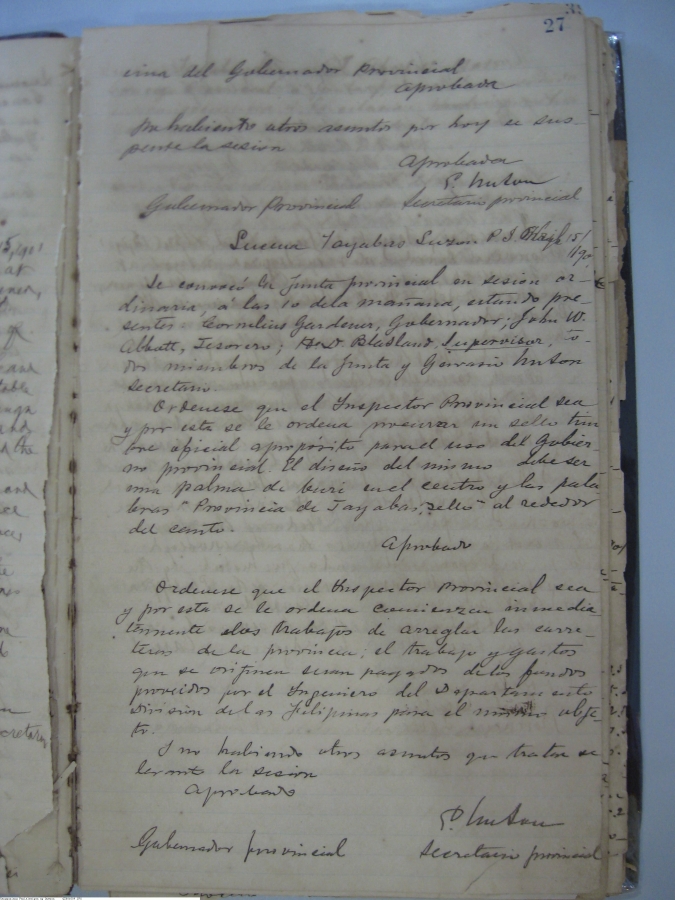 27
cina del Gobernador Provincial
aprobada
No habiento otros asuntos por hoy se sus-
pente la sesion
Aprobada
G. Unson
Gobernador Provincial Secretario provincial
Lucena Tayabas Luzon P. I. 15/
190
Se convocó la Junta provincial en sesion or-
dinaria, á las 10 de la mañana, estando pre-
sentes Cornelius Gardener, Gobernador; John W.
Abbott, Tesorero; H. D. Supervisor, to-
dos miembros de la Junta y Gervasio Unson
secretario.
Ordenese que el Inspector Provincial sea
y por esta se le ordena procurar un sello tim
bre oficial apropósito para el uso del Gobier-
no provincial. El diseño del mismo debe ser
una palma de buri en el centro y las pala
bras "Provincia de Tayabas, sello" al rededor
del canto.
Aprobado
Ordenese que el Inspector Provincial sea
y por esta se le ordena comienzen inmedia
tamente los trabajos de arreglar las carre-
teras de la provincia; el trabajo y gastos
que se originen seran pagados de los fondos
proveidos por el Ingeniero del Departamento
Division de las Filipinas para el mismo obje-
to.
Y no habiendo otros asuntos que tratar se
levanto la sesion
Aprobado
G. Unson
Gobernador provincial secretario provincial